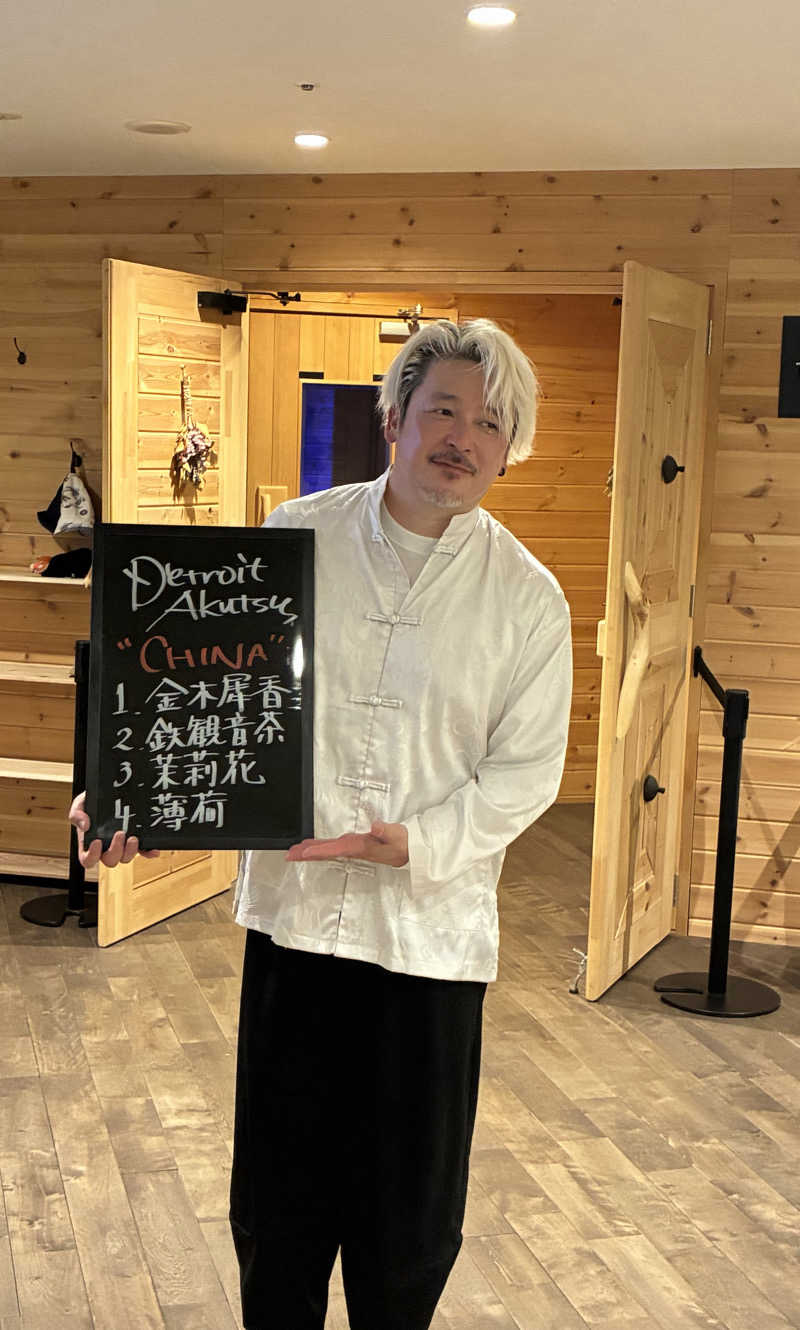 Detroit
Akutsu
"CHINA"
1. 金木犀香
2. 鉄観音茶
3. 茉莉花
4. 薄荷